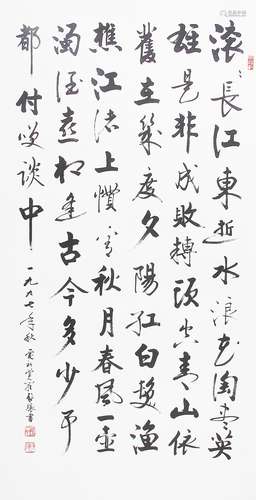 滚〻長江東逝水浪花淘尽英
雄是非成敗轉頭空青山依
舊在幾度夕陽紅白髮漁
樵江渚上慣看秋月春風一壺
濁酒喜相逢古今多少事
都付笑談中
一九九七年秋 書